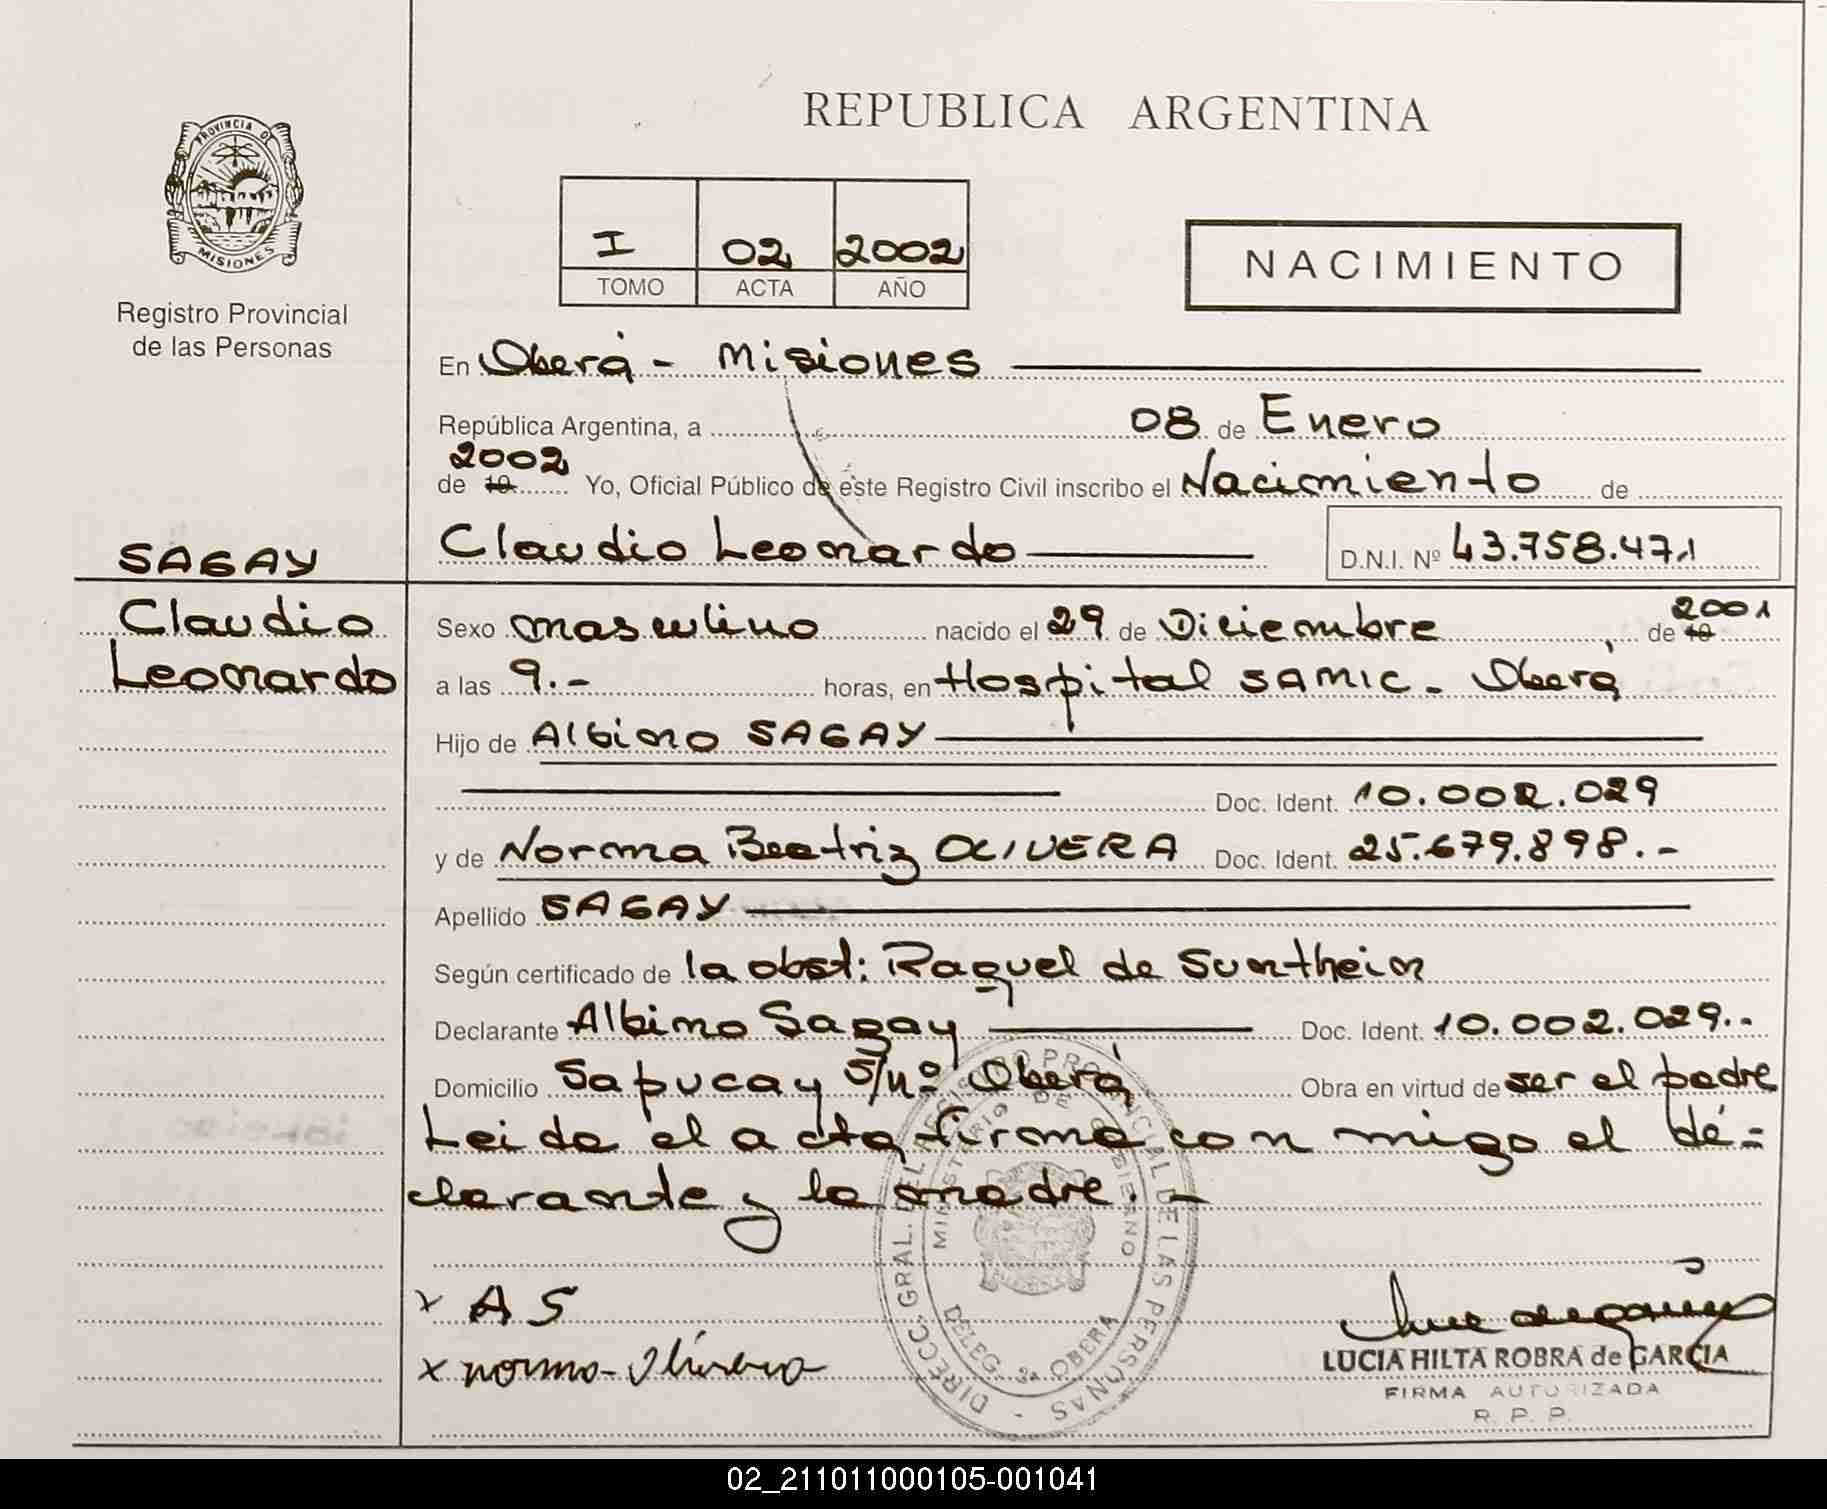 REPUBLICA ARGENTINA
PROVINCIA DE
MISIONES
Registro Provincial
de las Personas
I 02 2002
TOMO ACTA AÑO
NACIMIENTO
En Oberá - Misiones
República Argentina, a 08 de Enero
2002
de 19 Yo, Oficial Público de este Registro Civil inscribo el Nacimiento de
Claudio Leonardo D.N.I. Nº 43.758.471
SAGAY
Claudio
Leonardo
Sexo masculino nacido el 29 de Diciembre de 19 2001
a las 9.- horas, en Hospital SAMIC - Oberá
Hijo de Albino SAGAY
Doc. Ident. 10.002.029
y de Norma Beatriz OLIVERA Doc. Ident. 25.679.898.-
Apellido SAGAY
Según certificado de la obst: Raquel de Suntheim
Declarante Albino Sagay Doc. Ident. 10.002.029.-
Domicilio Sapucay S/nº Oberá Obra en virtud de ser el padre
Leida el acta firma con migo el de=
clarante y la madre. -
x A S
x norma - Olivera
DIRECC. GRAL. DEL REGISTRO PROVINCIAL DE LAS PERSONAS -
MINISTERIO DE GOBIERNO
DELEG. 3ª OBERA
LUCIA HILTA ROBRA de GARCIA
FIRMA AUTORIZADA
R. P. P.
02_211011000105-001041